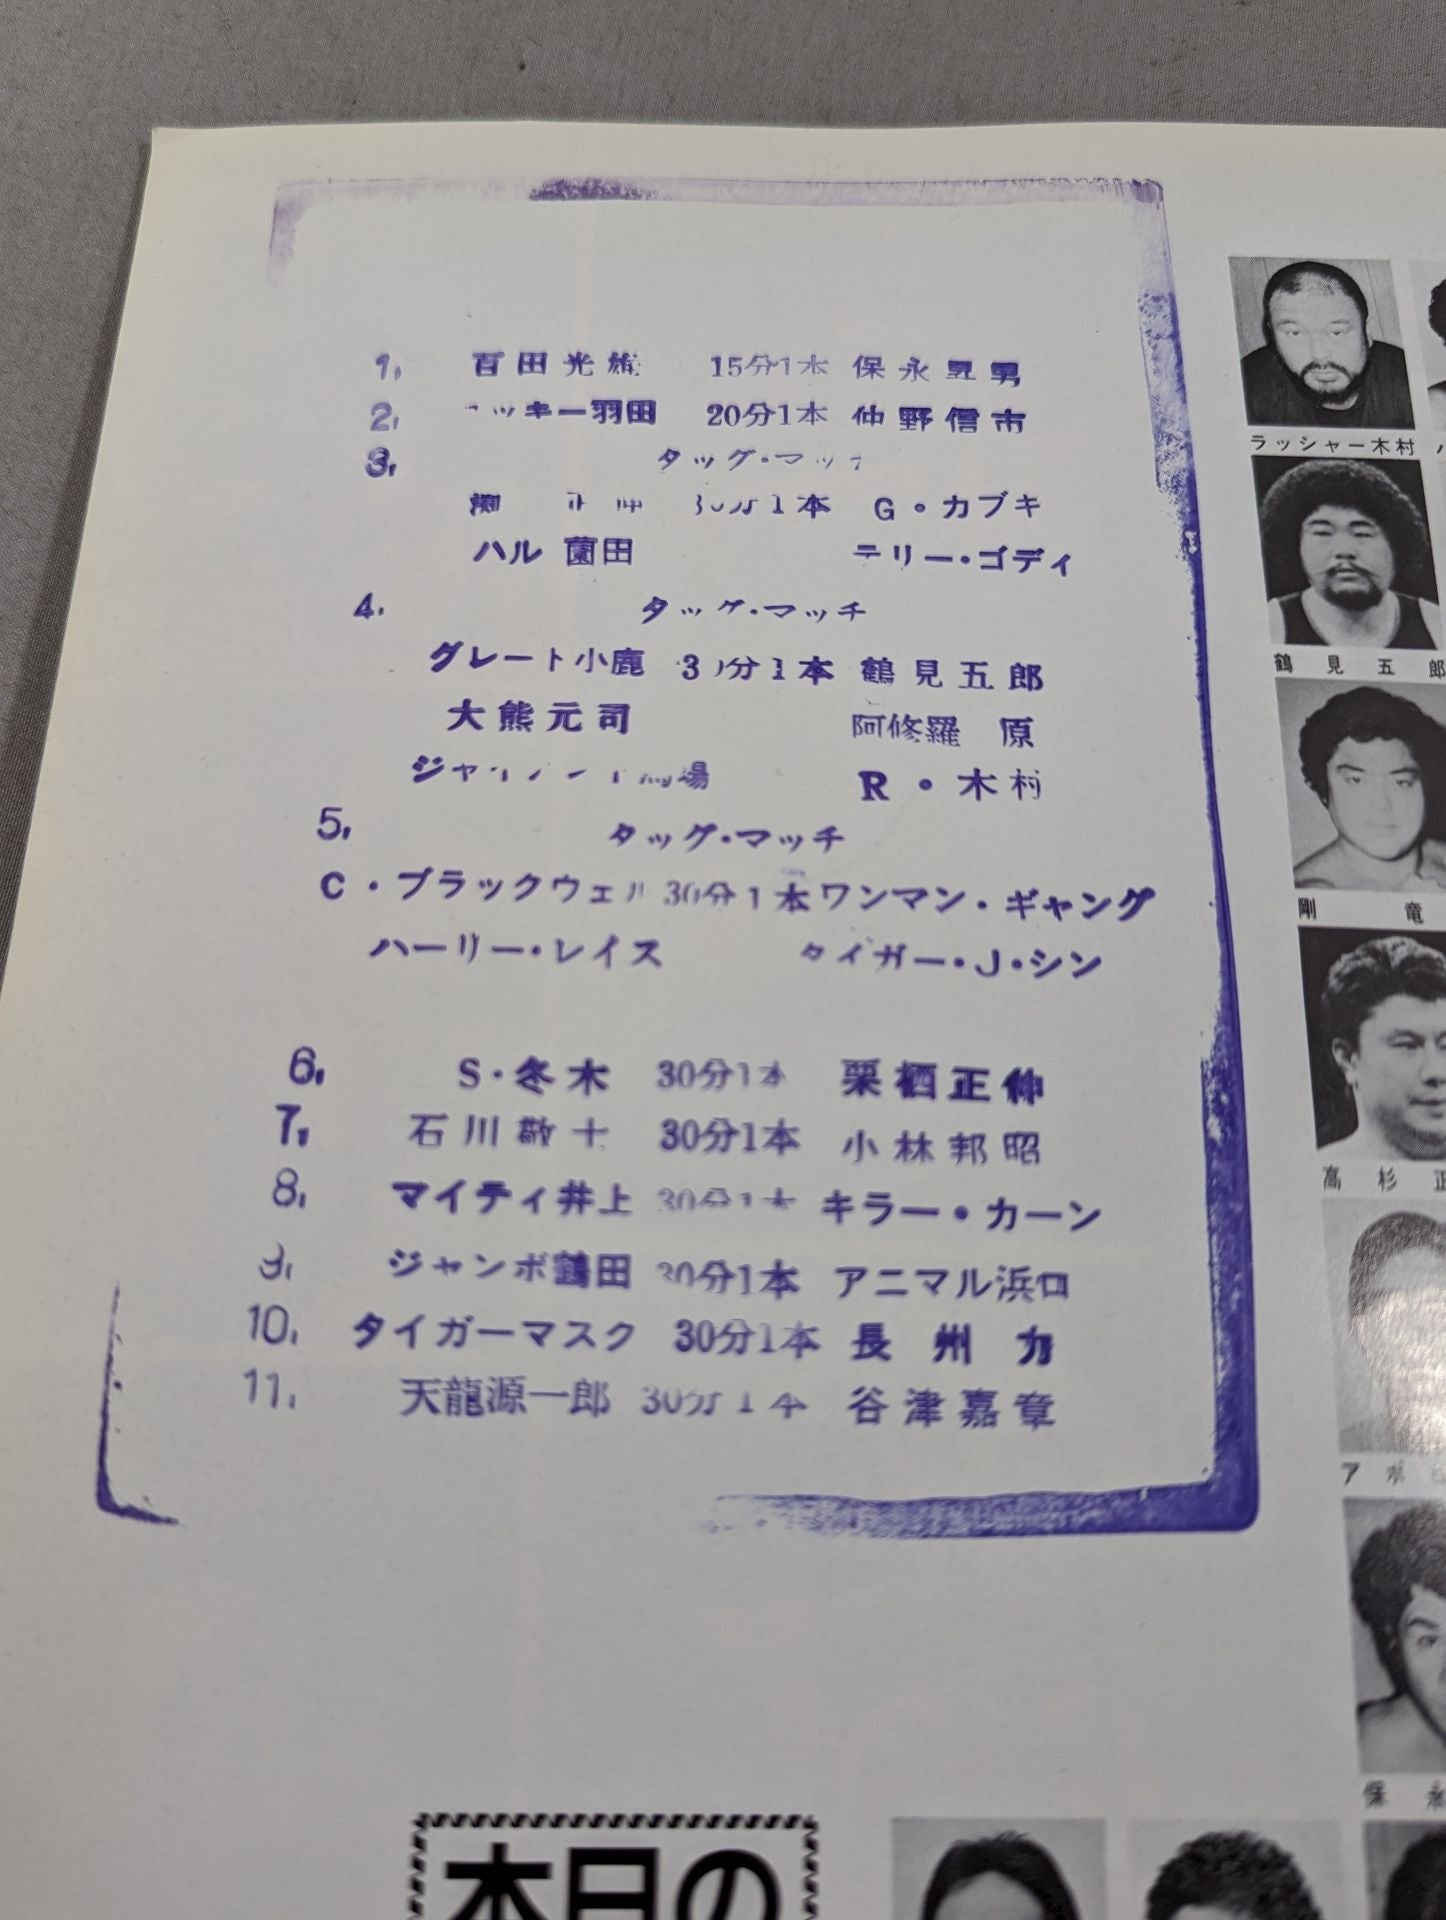 1. 百田光雄 15分1本 保永昇男
2. ッキー羽田 20分1本 仲野信市
3. タッグ・マッチ
渕 正 30分1本 G・カブキ
ハル薗田 テリー・ゴディ
4. タッグ・マッチ
グレート小鹿 30分1本 鶴見五郎
大熊元司 阿修羅 原
ジャイアント馬場 R・木村
5. タッグ・マッチ
C・ブラックウェル 30分1本 ワンマン・ギャング
ハーリー・レイス タイガー・J・シン
6. S・冬木 30分1本 栗栖正伸
7. 石川敬士 30分1本 小林邦昭
8. マイティ井上 30分1本 キラー・カーン
9. ジャンボ鶴田 30分1本 アニマル浜口
10. タイガーマスク 30分1本 長州力
11. 天龍源一郎 30分1本 谷津嘉章
ラッシャー木村
鶴見五郎
剛竜
高杉正
アポロ
保永
本日の